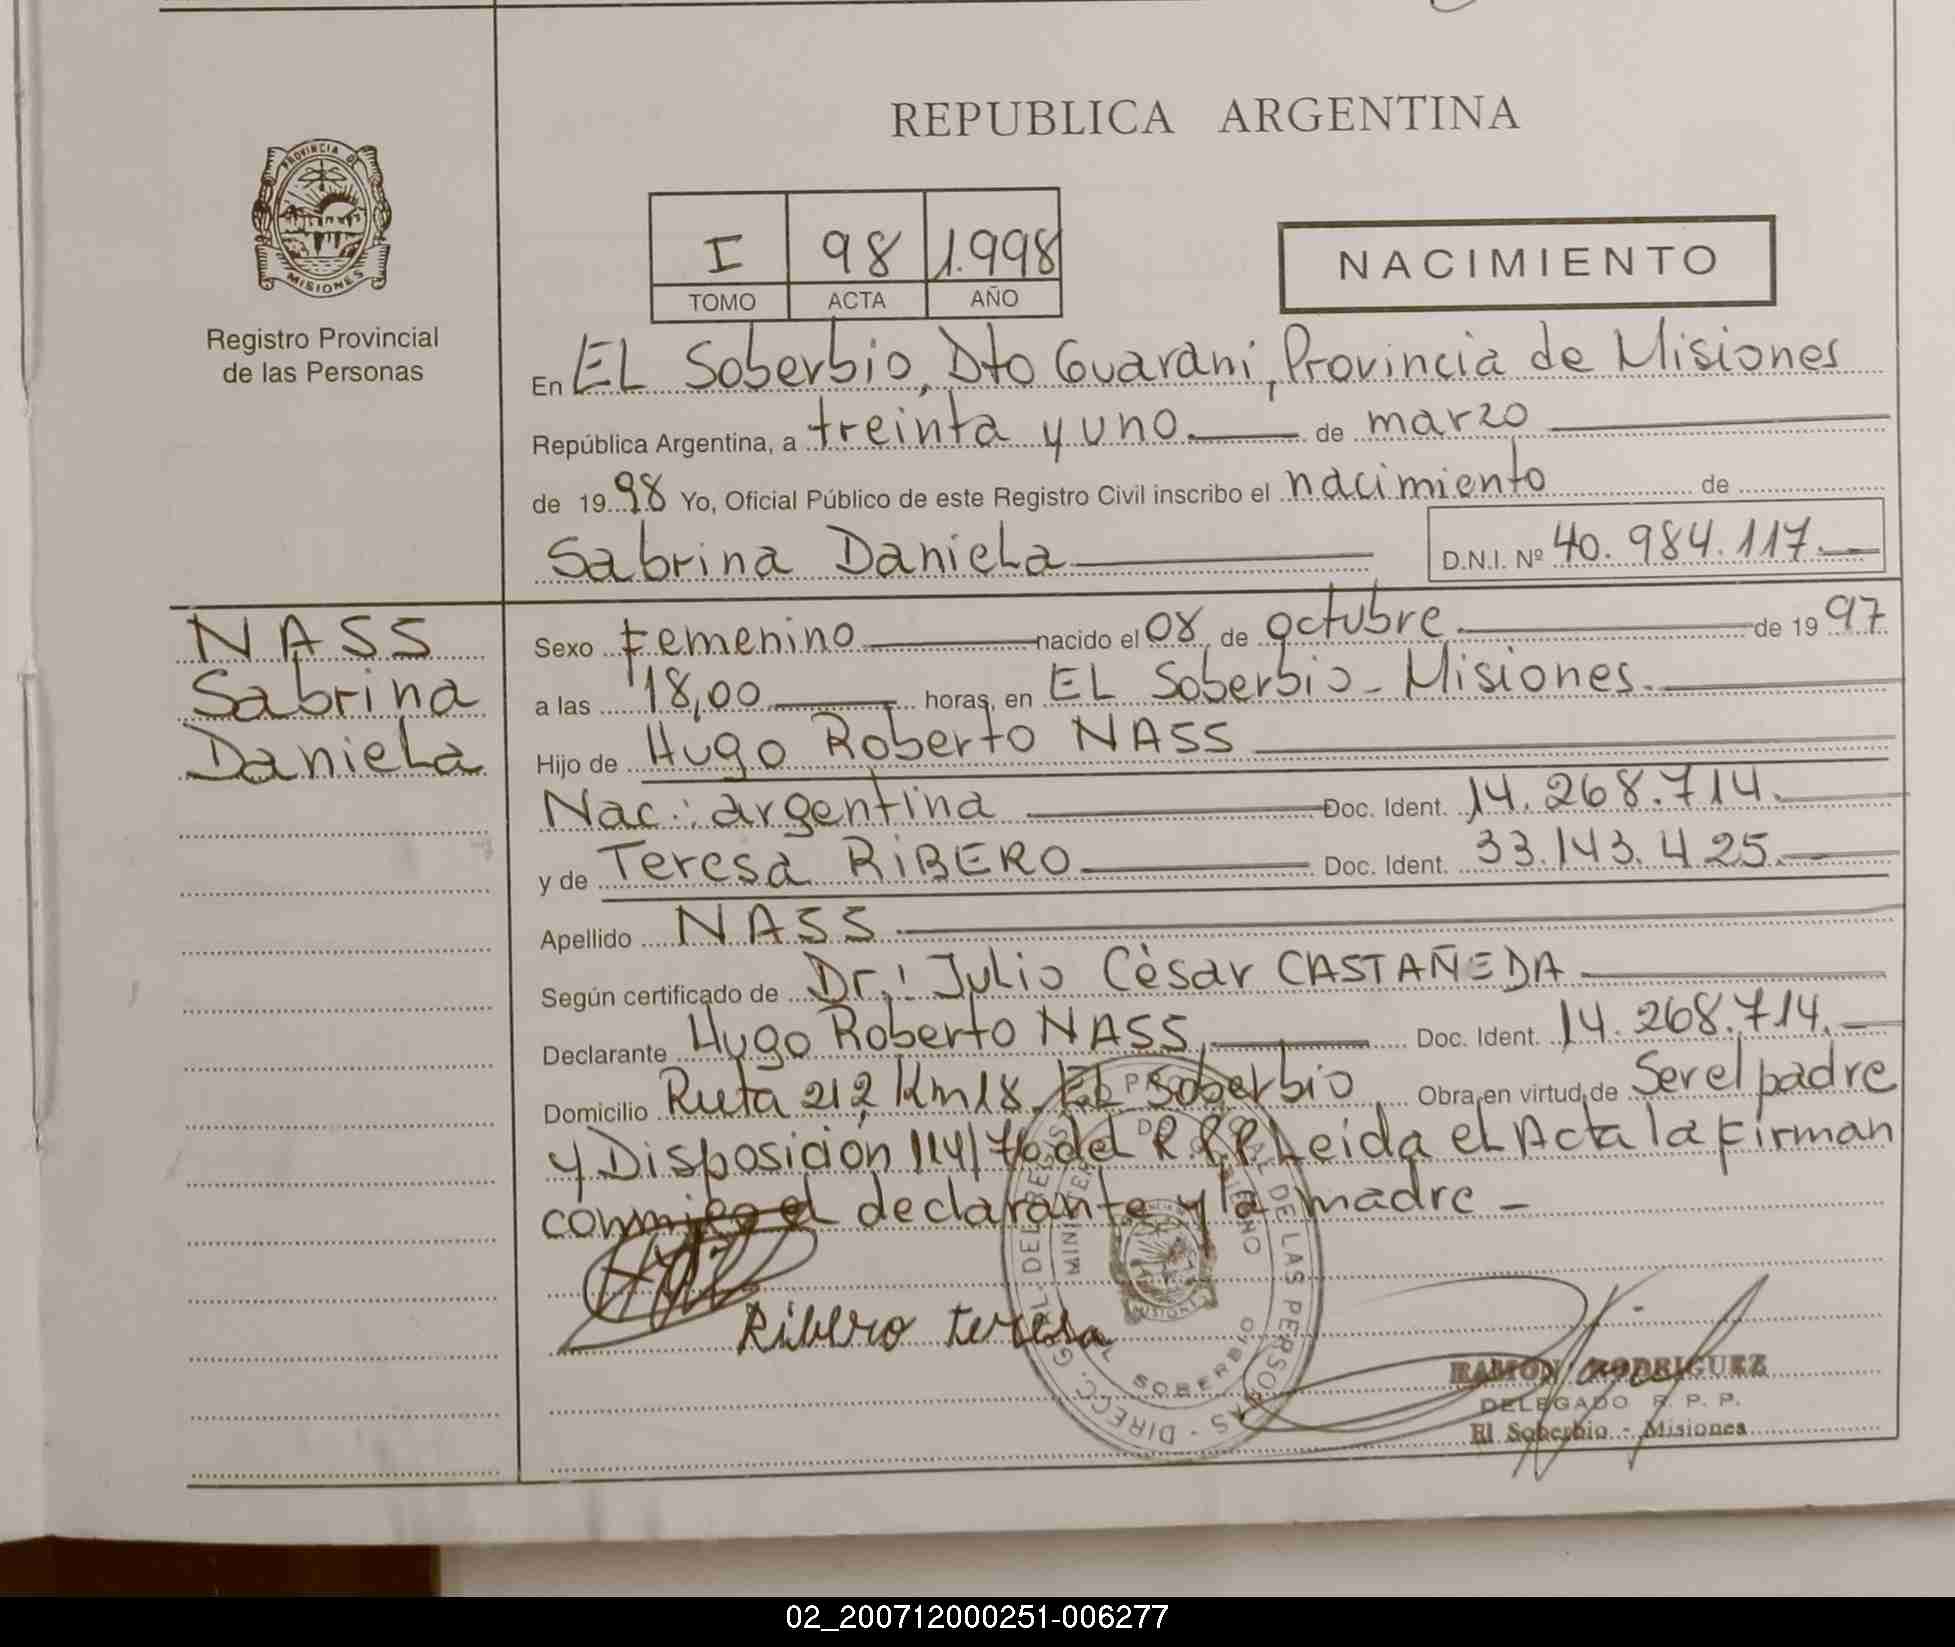 REPUBLICA ARGENTINA
PROVINCIA DE
MISIONES
Registro Provincial
de las Personas
I 98 1.998
TOMO ACTA AÑO
NACIMIENTO
En EL Soberbio, Dto Guarani, Provincia de Misiones
República Argentina, a treinta y uno. de marzo
de 19 98 Yo, Oficial Público de este Registro Civil inscribo el nacimiento de
Sabrina Daniela D.N.I. Nº 40.984.117.
NASS
Sabrina
Daniela
Sexo Femenino nacido el 08 de octubre de 19 97
a las 18,00 horas, en EL Soberbio - Misiones.
Hijo de Hugo Roberto NASS
Nac.: argentina Doc. Ident. 14.268.714.
y de Teresa RiBERO Doc. Ident. 33.143.425.
Apellido NASS
Según certificado de Dr.: Julio Cèsar CASTAÑEDA
Declarante Hugo Roberto NASS, Doc. Ident. 14.268.714.
Domicilio Ruta 212 Km 18 EL Soberbio Obra en virtud de Ser el padre
y Disposición 114/76 del R.P.P. Leida el Acta la Firman
conmigo el declarante y la madre -
Ribero teresa
DE LAS PERSONAS - DIRECC. G
SOBERBIO
RAMON RODRIGUEZ
DELEGADO R. P. P.
El Soberbio - Misiones
02_200712000251-006277